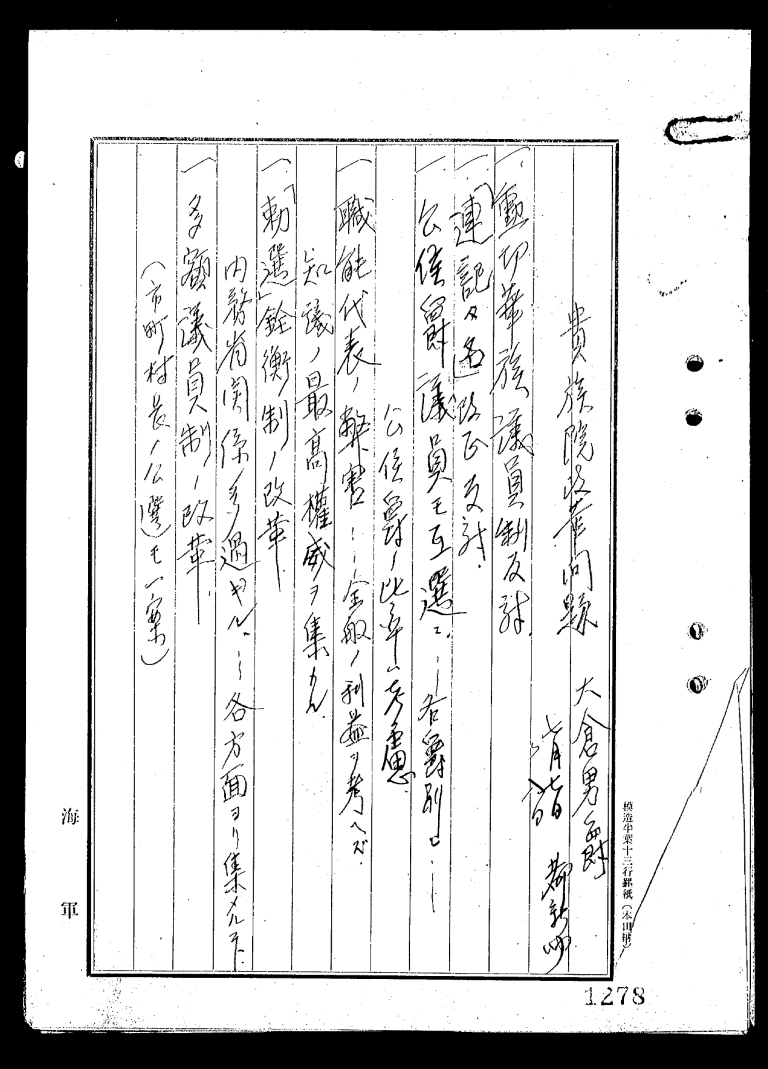 貴族院改革問題 大倉男爵
七月七日
都新聞
一、勲功華族議員制反対
一、「連記々名」改正反対.
一、公侯爵議員モ互選ニ.―各爵別ニ.―
公侯爵ノ比率ハ考慮
一、職能代表ノ弊害―全般ノ利益ヲ考ヘズ.
知識ノ最高権威ヲ集メル
一、「勅選」銓衡制ノ改革.
内務省関係ノ多過ギル.―各方面ヨリ集メルヿ.
一、多額議員制ノ改革.
(市町村長ノ公選)モ一案)
海軍
模造半葉十三行罫紙(本田納)
1278